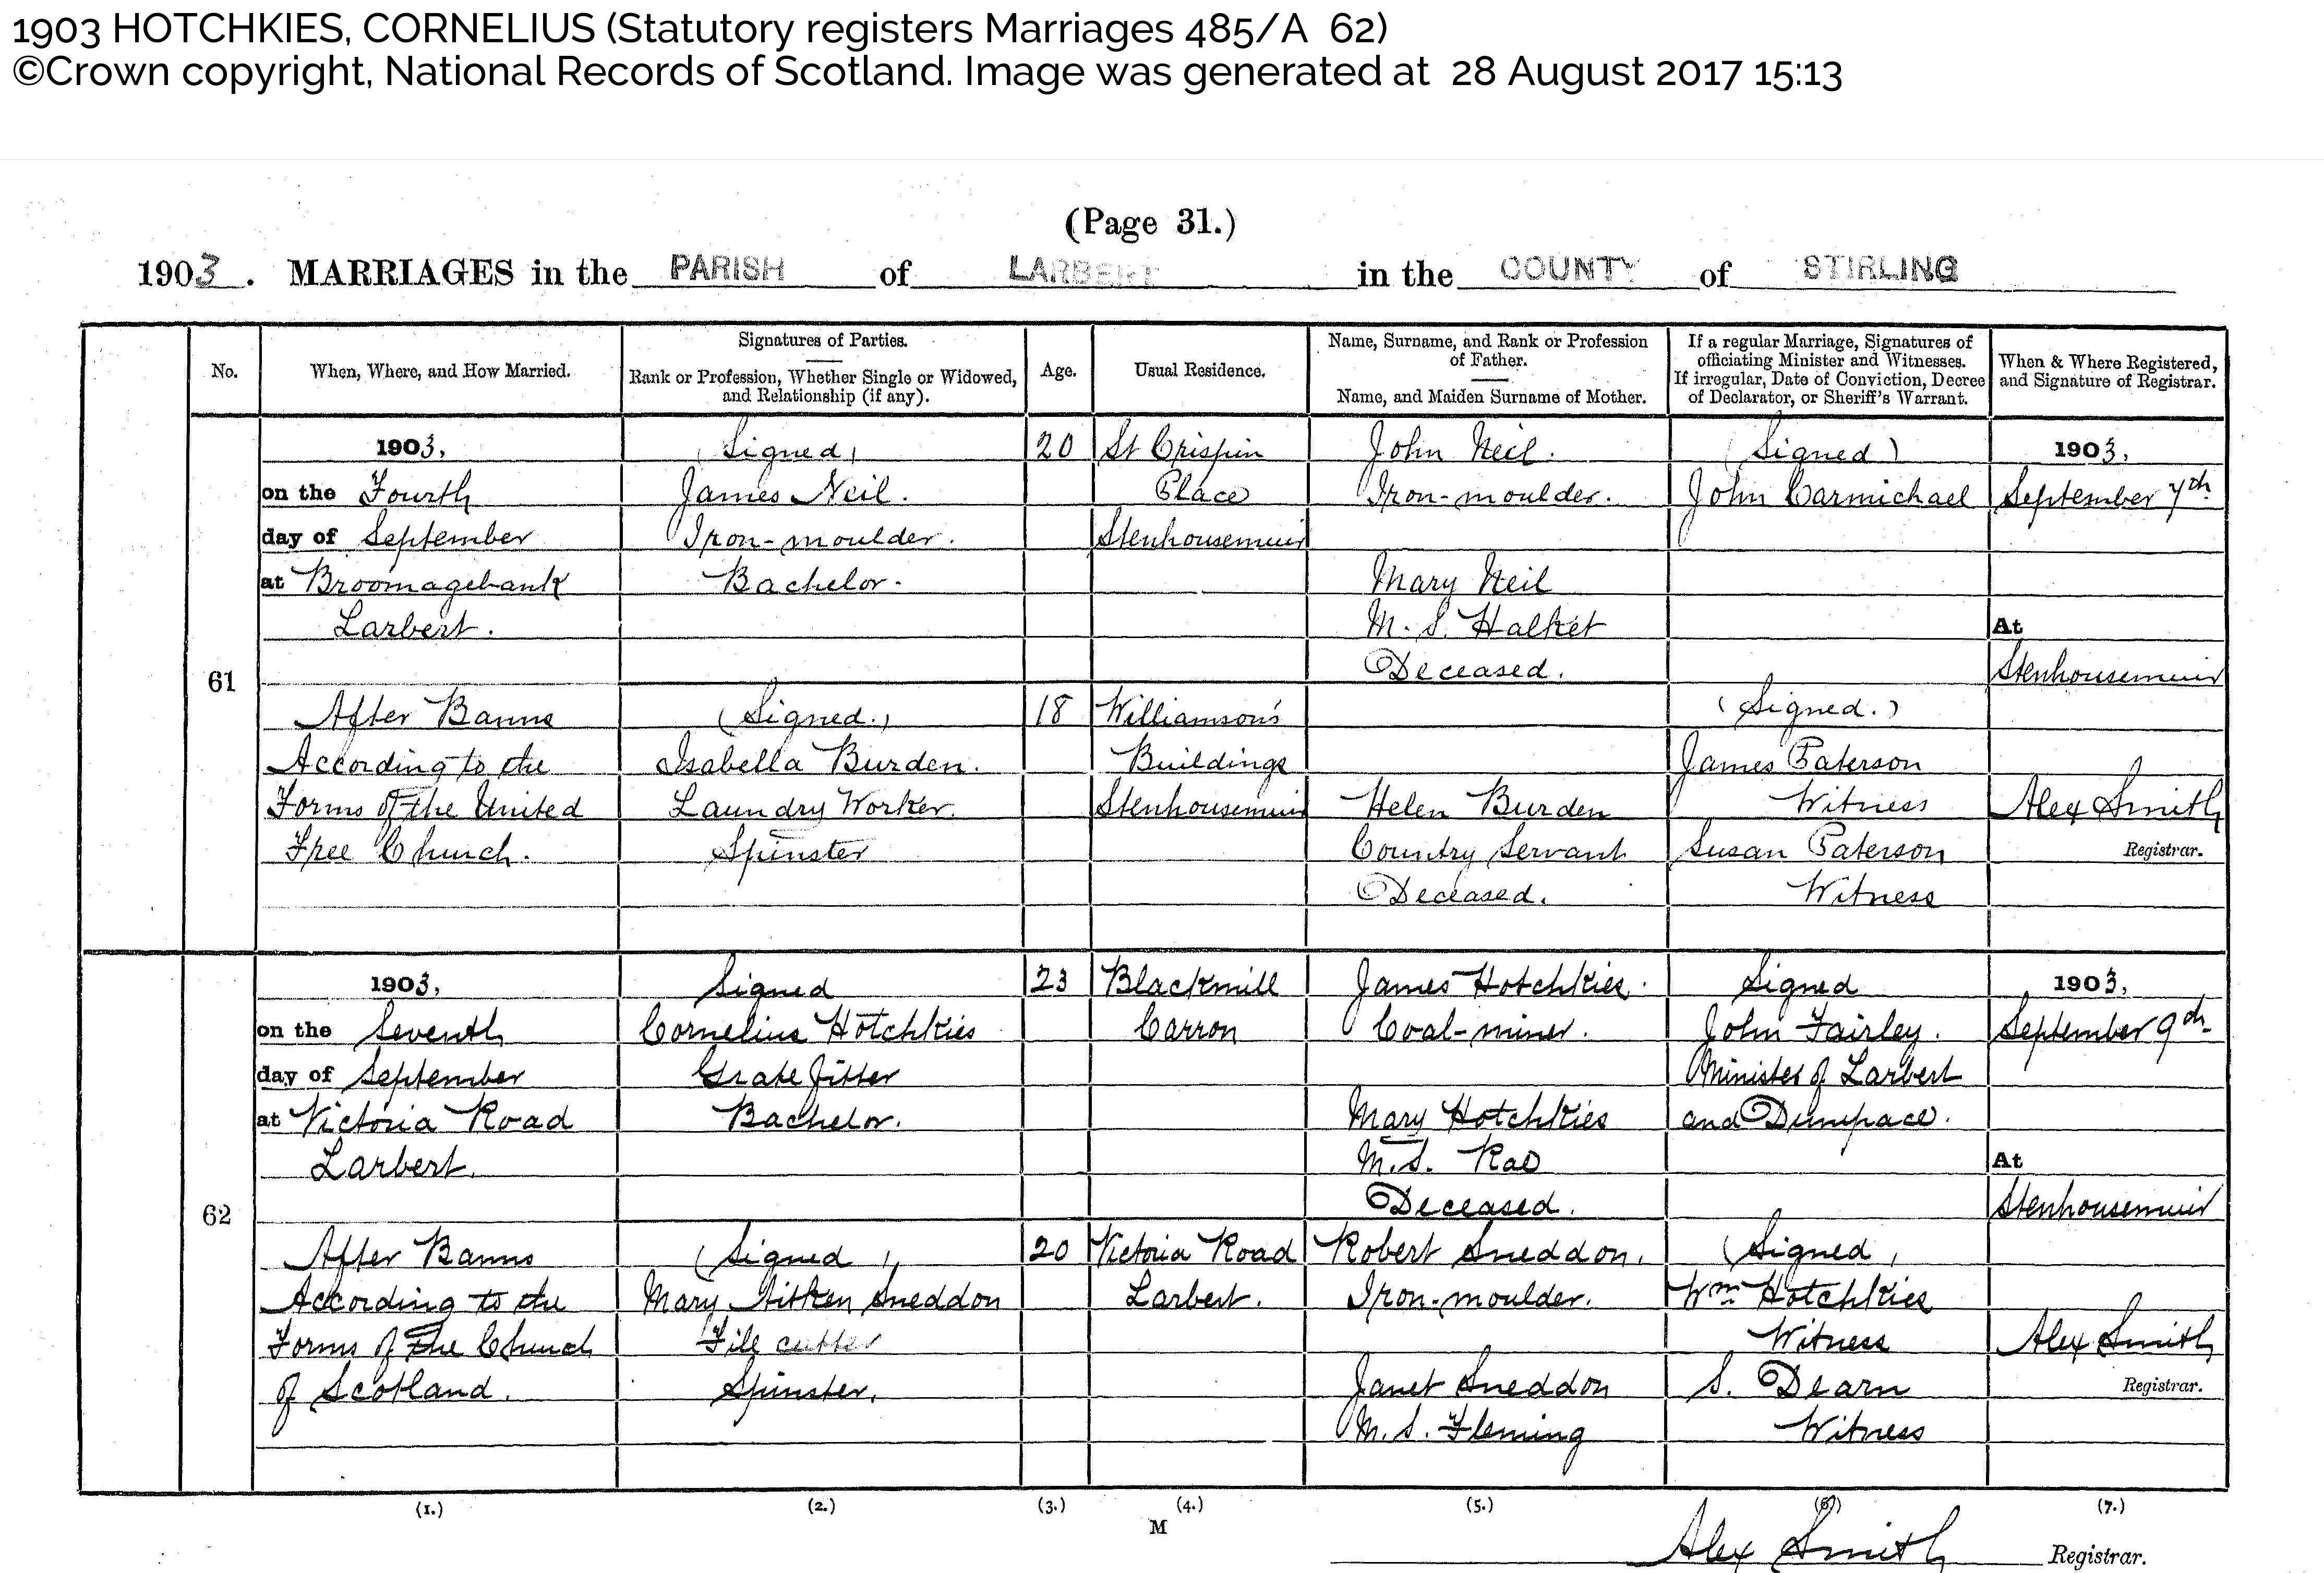 1903 HOTCHKIES, CORNELIUS (Statutory registers Marriages 485/A 62)
©Crown copyright, National Records of Scotland. Image was generated at 28 August 2017 15:13
(Page 31.)
1903. MARRIAGES in the PARISH of LARBERT in the COUNTY of STIRLING
No.
When, Where, and How Married.
Signatures of Parties.
Rank or Profession, Whether Single or Widowed,
and Relationship (if any).
Age.
Usual Residence.
Name, Surname, and Rank or Profession
of Father.
Name, and Maiden Surname of Mother.
If a regular Marriage, Signatures of
officiating Minister and Witnesses.
If irregular, Date of Conviction, Decree
of Declarator, or Sheriff's Warrant.
When & Where Registered,
and Signature of Registrar.
61
1903,
on the Fourth
day of September
at Broomagebank
Larbert.
After Banns
According to the
Forms of the United
Free Church.
(Signed)
James Neil.
Iron-moulder.
Bachelor.
(Signed.)
Isabella Burden.
Laundry Worker.
Spinster
20
18
St Crispin
Place
Stenhousemuir
Williamson's
Buildings
Stenhousemuir
John Neil.
Iron-moulder.
Mary Neil
M.S. Halket
Deceased.
Helen Burden
Country Servant
Deceased.
(Signed)
John Carmichael
(Signed.)
James Paterson
Witness
Susan Paterson
Witness
1903,
September 7th
At
Stenhousemuir
Alex Smith
Registrar.
62
1903,
on the Seventh
day of September
at Victoria Road
Larbert.
After Banns
According to the
Forms of the Church
of Scotland.
Signed
Cornelius Hotchkies
Grate fitter
Bachelor.
(Signed)
Mary Aitken Sneddon
File cutter
Spinster.
23
20
Blackmill
Carron
Victoria Road
Larbert.
James Hotchkies.
Coal-miner.
Mary Hotchkies
M.S. Rae
Deceased.
Robert Sneddon.
Iron-moulder.
Janet Sneddon
M.S. Fleming
Signed
John Fairley.
Minister of Larbert
and Dunipace.
(Signed)
Wm Hotchkies
Witness
S. Dearn
Witness
1903,
September 9th
At
Stenhousemuir
Alex Smith
Registrar.
(1.) (2.) (3.) (4.) (5.) (6) (7.)
M
Alex Smith Registrar.